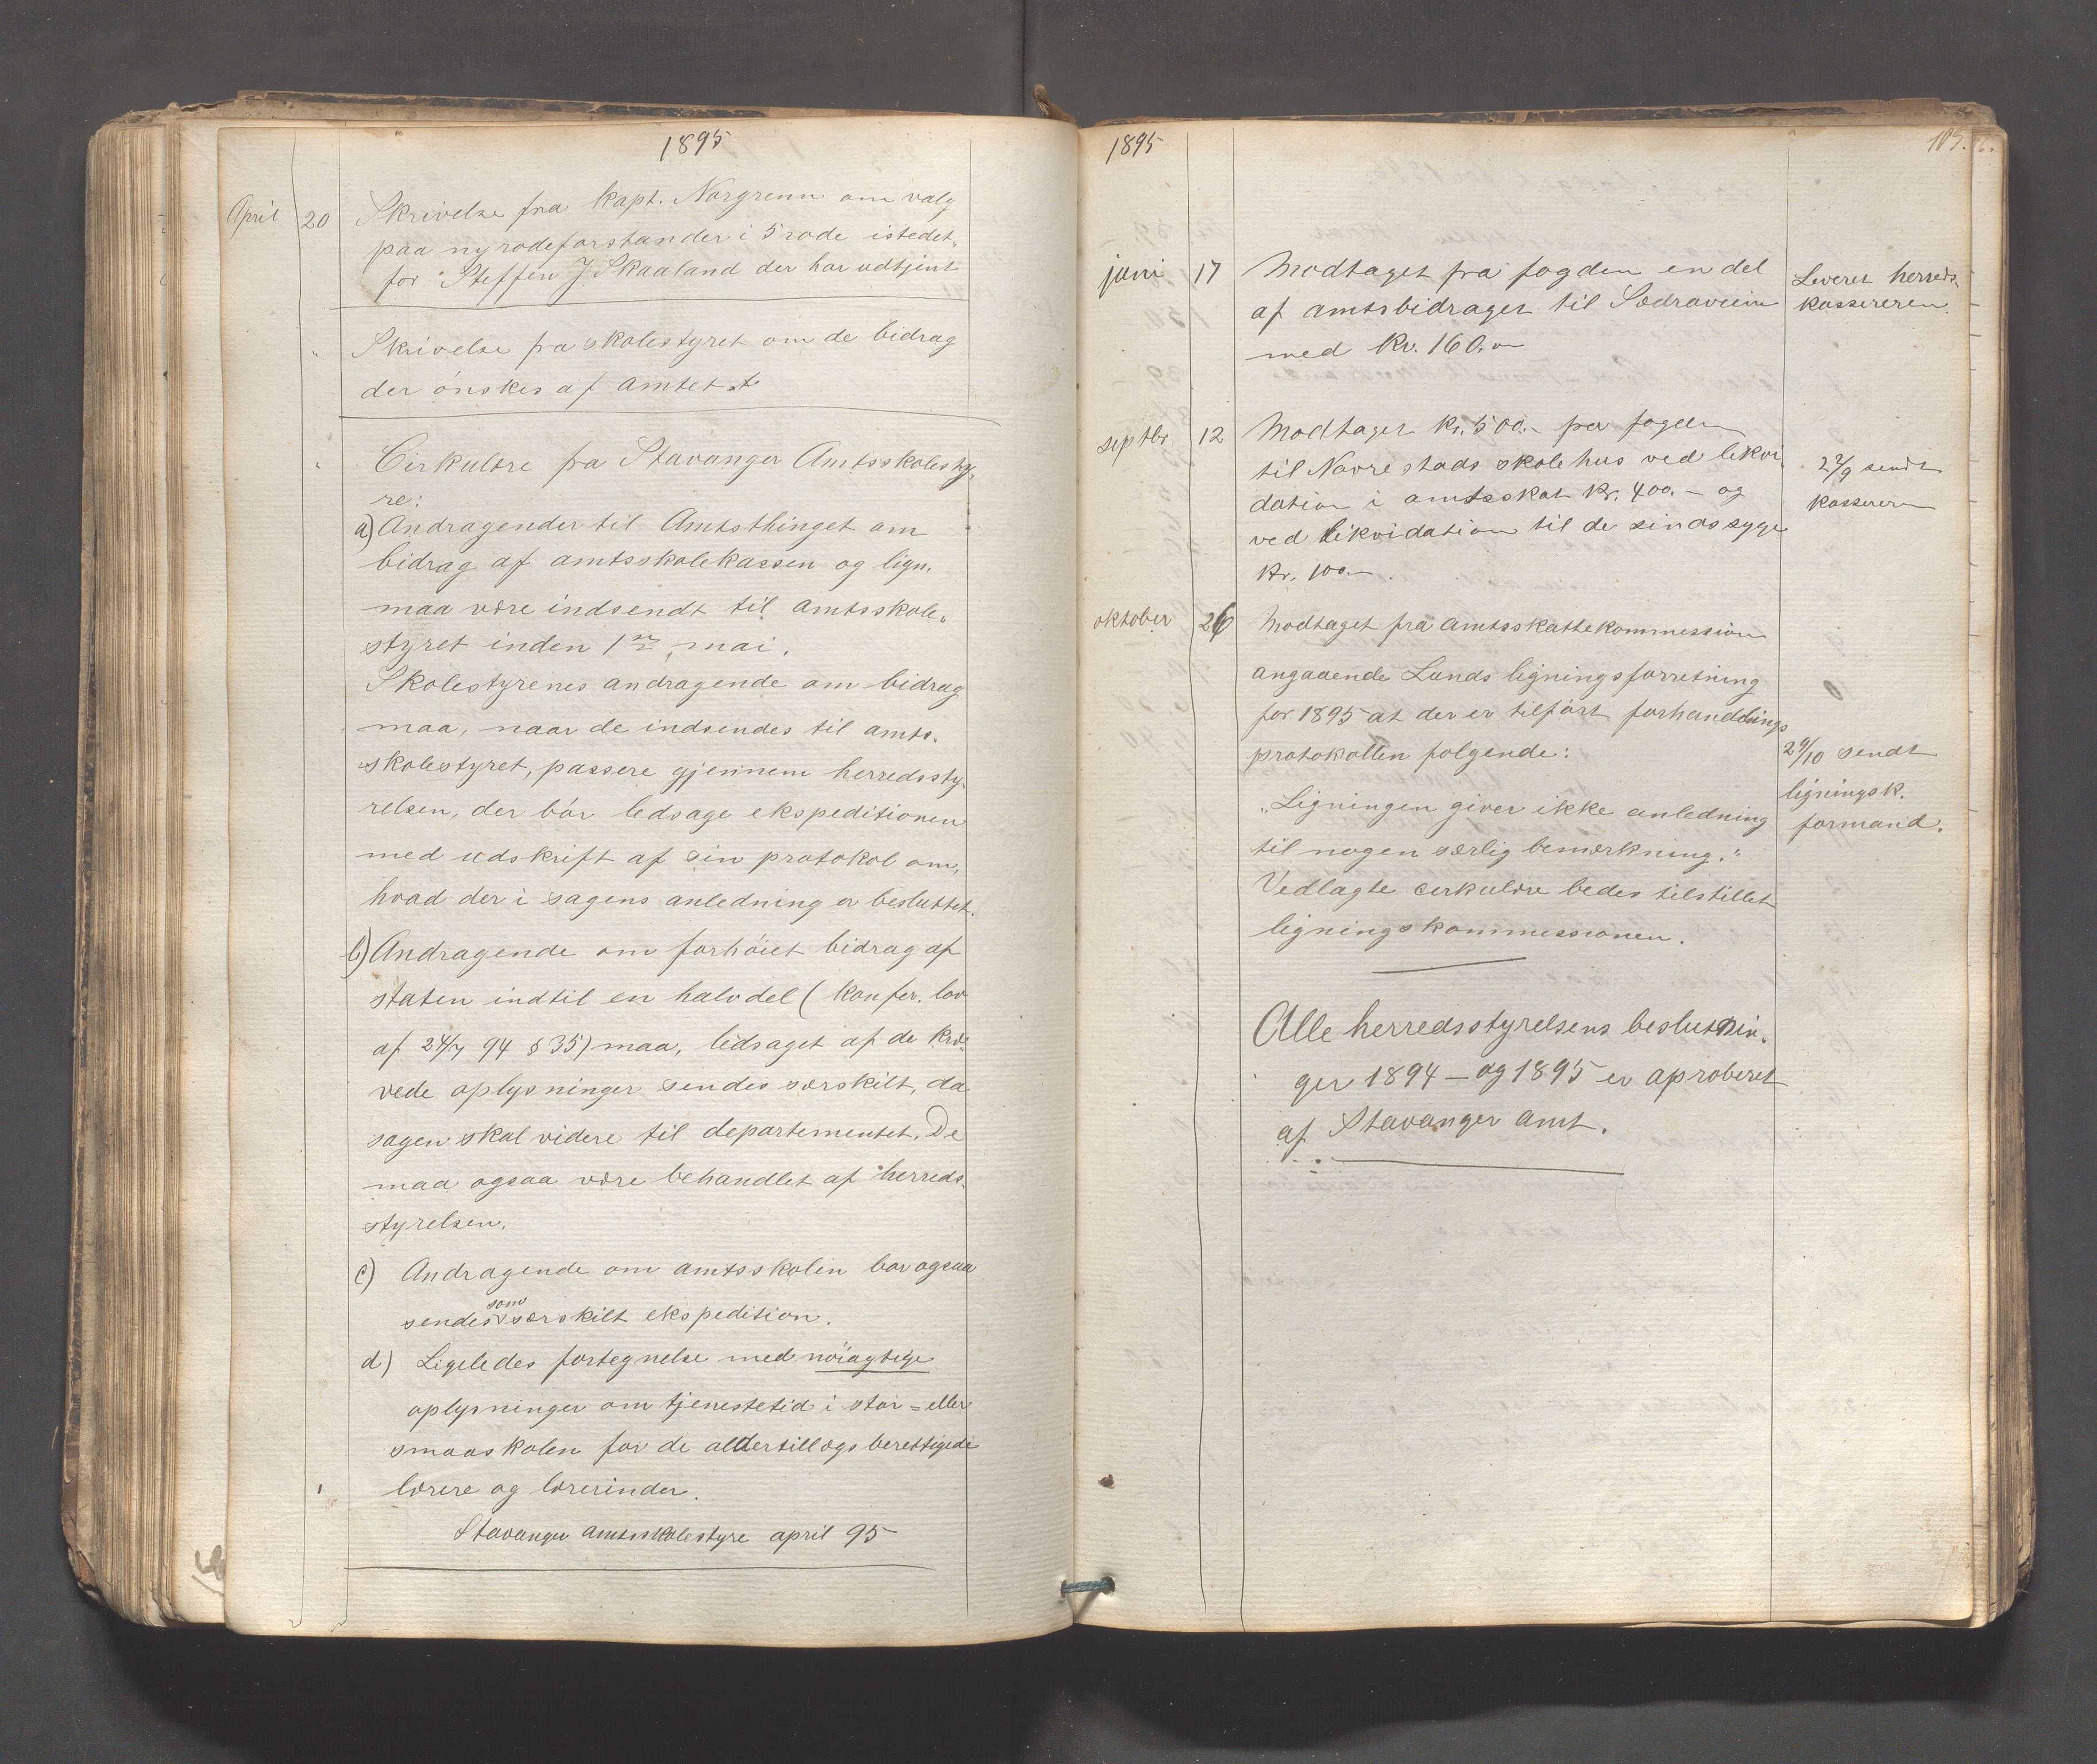 1895
April 20 Skrivelse fra Kapt. Norgrenn om valg
paa ny rodeforstander i 5 rode istedet-
for Steffen J. Skaaland der har udtjent
" Skrivelse fra skolestyret om de bidrag
der ønskes af amtet
" Cirkulære fra Stavanger Amtsskolesty-
re:
a) Andragender til Amtsthinget om
bidrag af amtsskolekassen og lign.
maa være indsendt til amtsskole-
styret inden 1ste mai.
Skolestyrenes andragende om bidrag
maa, naar de indsendes til amts-
skolestyret, passere gjennem herredssty-
relsen, der bør ledsage ekspeditionen
med udskrift af sin protokol om,
hvad der i sagens anledning er besluttet.
b) Andragende om forhøiet bidrag af
staten indtil en halvdel (konfer. lov
af 24/7 94 § 35) maa, ledsaget af de kræ-
vede oplysninger sendes særskilt, da
sagen skal videre til departementet. De
maa ogsaa være behandlet af herreds-
styrelsen.
c) Andragende om amtsskolen bør ogsaa
som
sendes særskilt ekspedition.
d) Ligeledes fortegnelse med nøiagtige
oplysninger om tjenestetid i stor- eller
smaaskolen for de alderstillægsberettigede
lærere og lærerinder.
Stavanger amtsskolestyre april 95
1895
105.
juni 17 Modtaget fra fogden en del
af amtsbidraget til Sædraveien
med Kr. 160,00
Leveret herreds-
kassereren.
septbr 12 Modtaget Kr. 500.- fra fogden
til Navrestads skolehus ved likvi-
dation i amtsskat Kr. 400.- og
ved likvidation til de sindssyge
Kr. 100.-
27/9 sendt
kasseren
oktober 26 Modtaget fra amtsskattekommession
angaaende Lunds ligningsforretning
for 1895 at der er tilført forhandlings
protokollen følgende:
"Ligningen giver ikke anledning
til nogen særlig bemærkning."
Vedlagte cerkulære bedes tilstillet
ligningskommessionen.
29/10 sendt
ligningsk.
formand.
Alle herredsstyrelsens beslutnin-
ger 1894 - og 1895 er aproberet
af Stavanger amt.